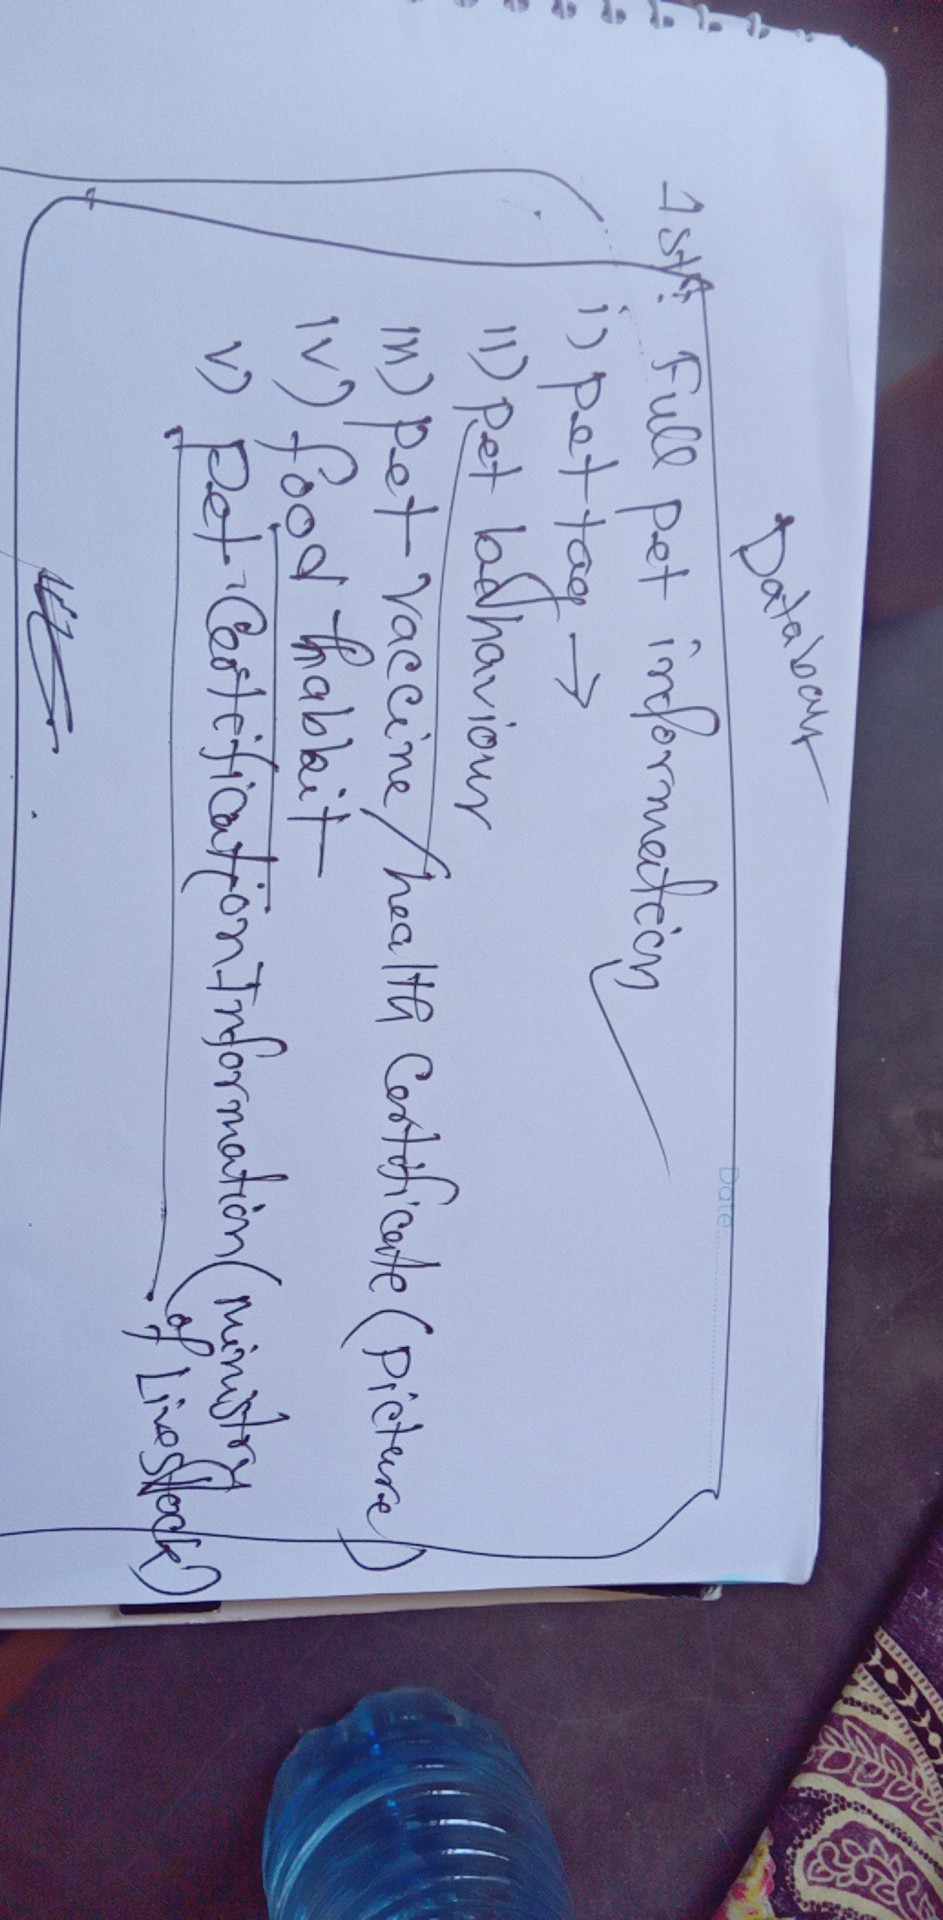 Database
Date
1st: Full pet information
i) pet tag →
ii) pet behaviour
iii) pet vaccine/health Certificate (picture)
iv) food habbit
v) pet Certification Information (ministry
of Livestock)